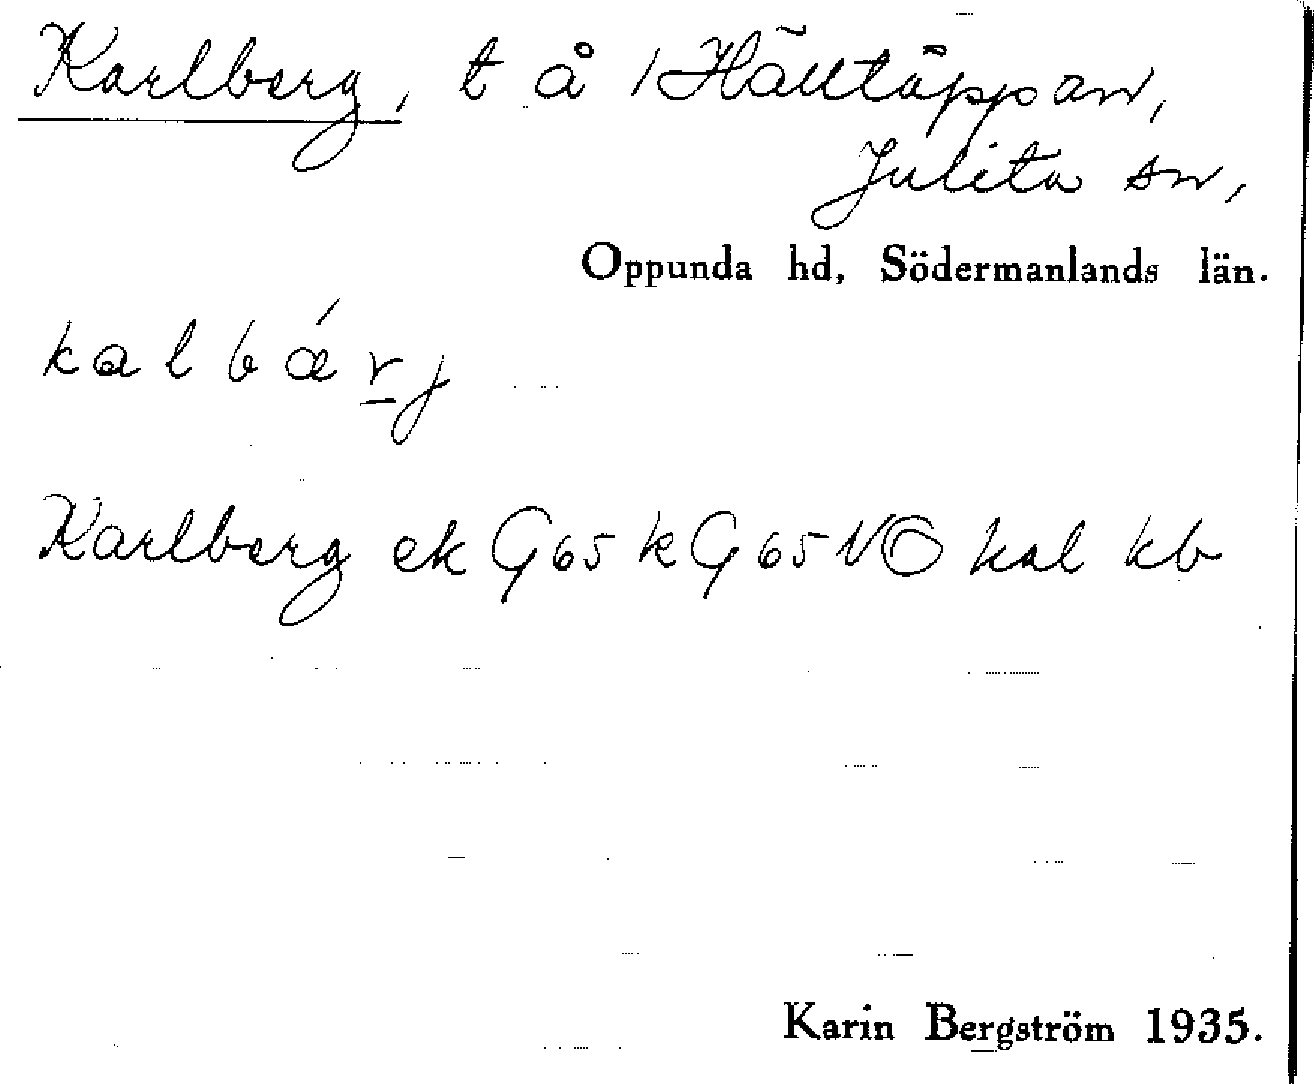 Karlberg, t å 1 Hälltäppan,
Julita sn,
Oppunda hd, Södermanlands län.
kalbǽrj
Karlberg ek G65 k G65 NO kal kb
Karin Bergström 1935.